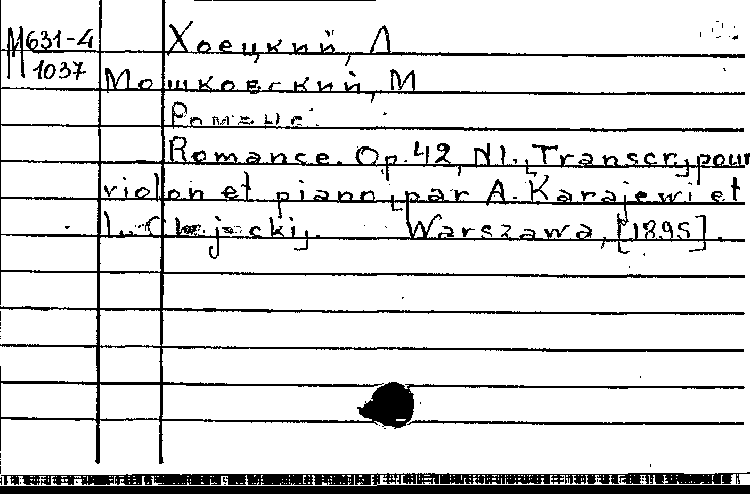 М631-4
1037
Хоецкий, Л
Мошковский, М
Романс.
Romance. Op. 42, N1. [Transcr] pour
violon et piano par A. Karajewi et
L. Chojecki. Warszawa, [1895].